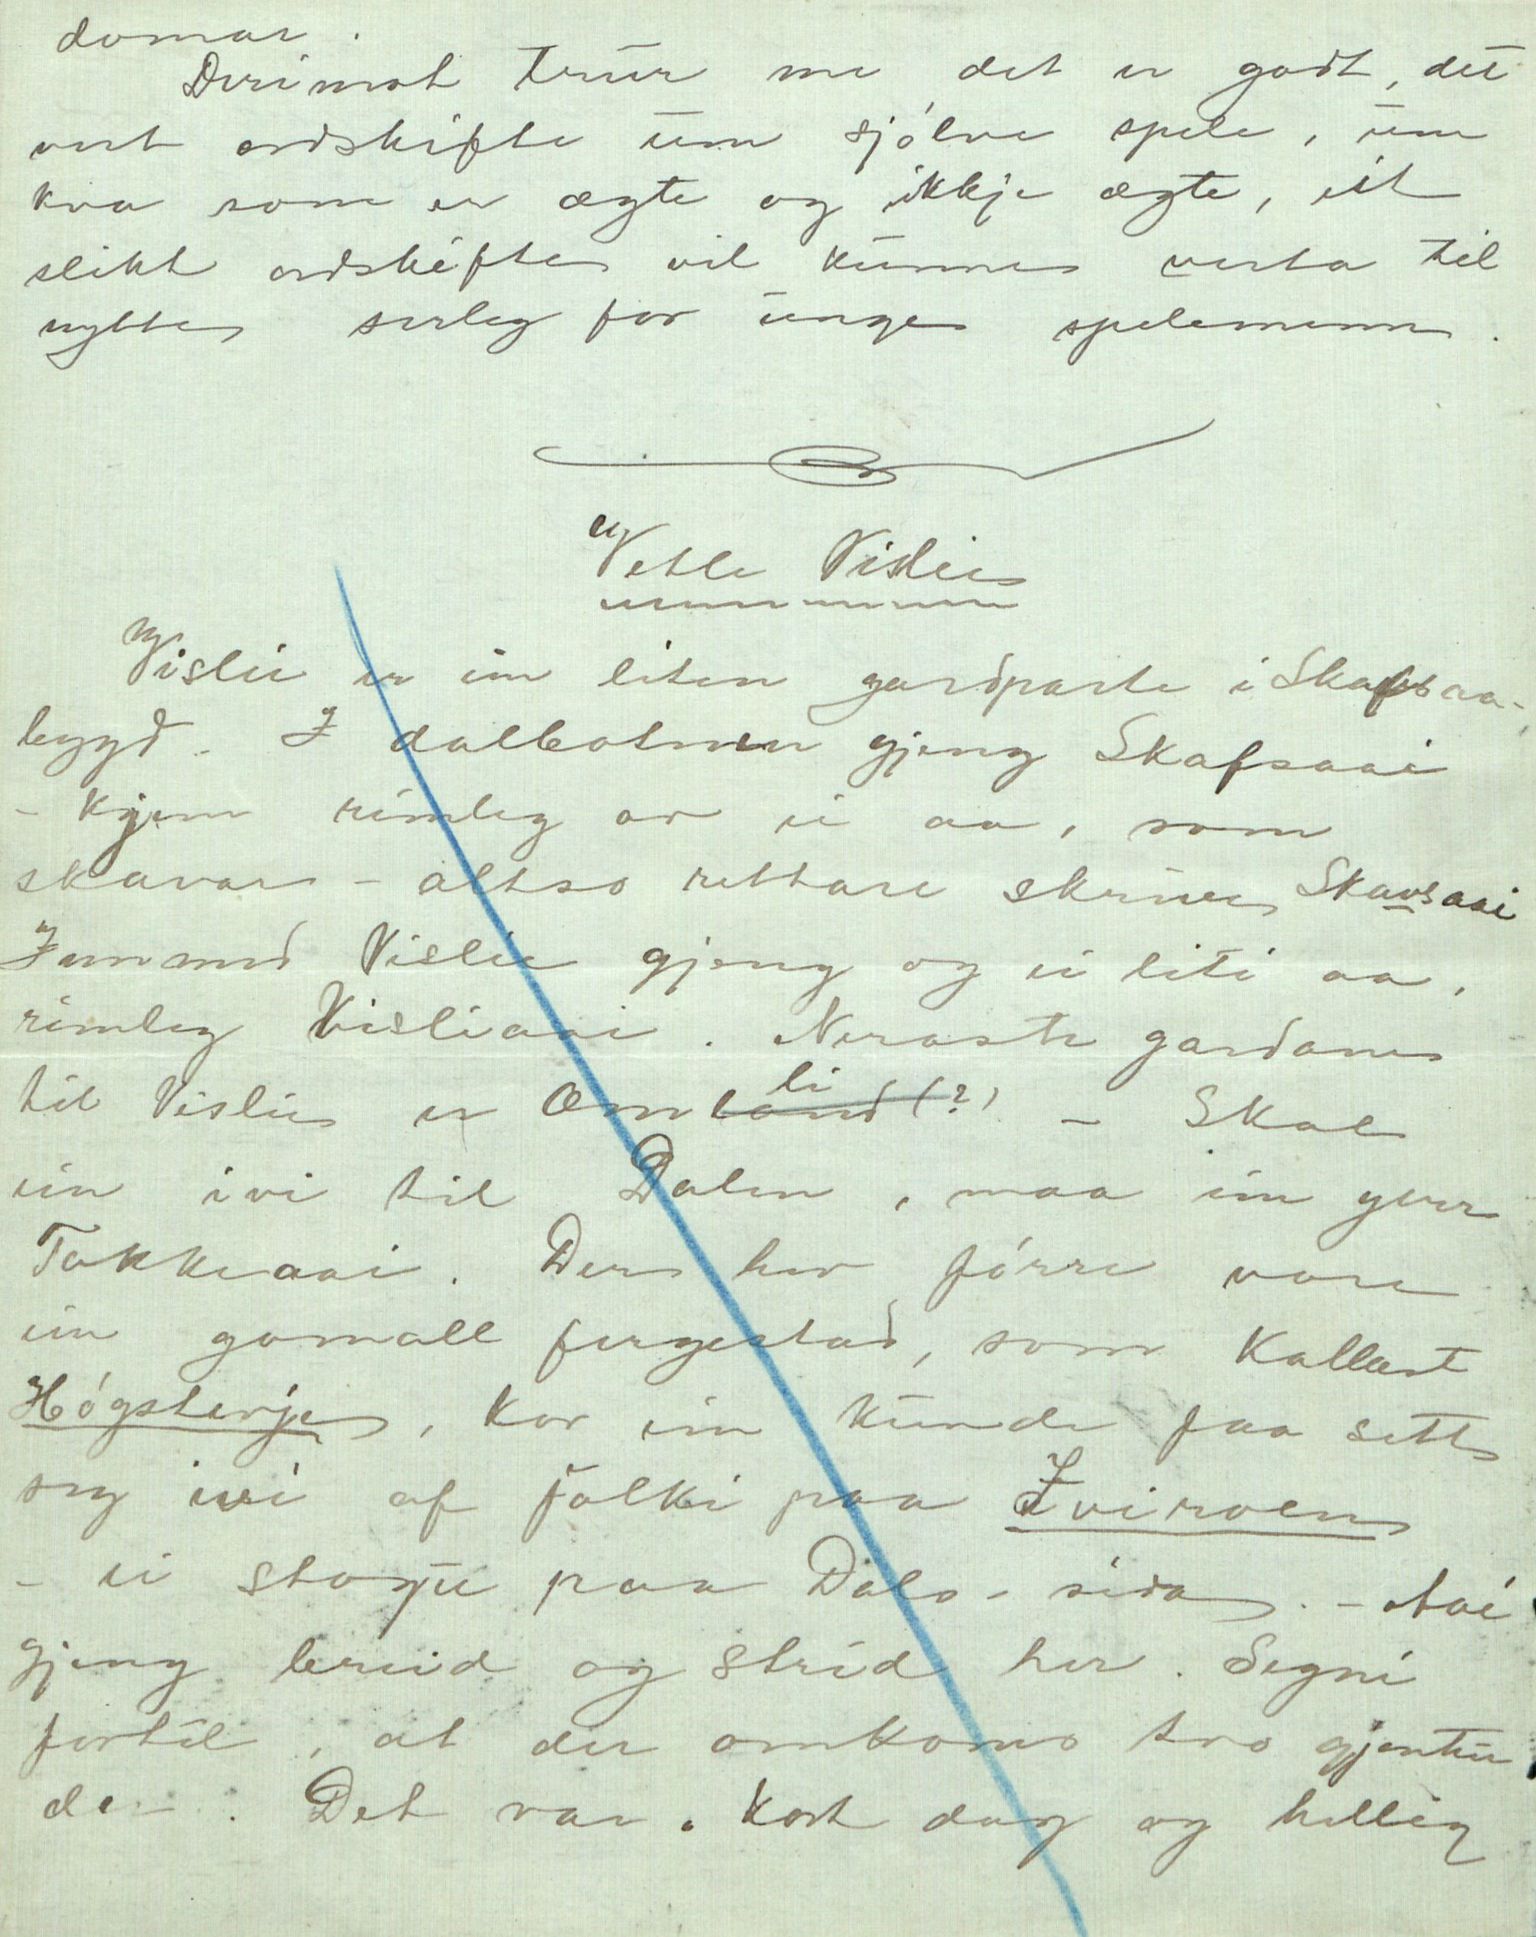 domar.
Derimot trur me det er godt, det
vert ordskifte um sjólve spele, um
kva som er ægte og ikkje ægte, eit
slikt ordskifte vil kunne verta til
nytte serleg for unge spelemenn.
Vetle Vislie
Vislii er ein liten gardparte i Skafsaa-
bygd. I dalbotnen gjeng Skafsaai
- kjem rimleg av ei aa, som
skavar - altso rettare skrive Skavsaai
Immed Vislie gjeng og ei liti aa,
rimleg Visliaai. Neraste gardane
til Vislie er Omland (?) li - Skal
ein ivi til Dalen, maa ein yver
Tokkeaai. Der hev fórre vore
ein gomall fergestad, som kallast
Hógsterje, kor ein kunde faa sett
seg ivi af folki paa Iviroen
- ei stogu paa Dals-sida. - Aai
gjeng breid og strid her. Segni
fortel, at der omkomo tvo gjentur
der. Det var kost dag og hellig